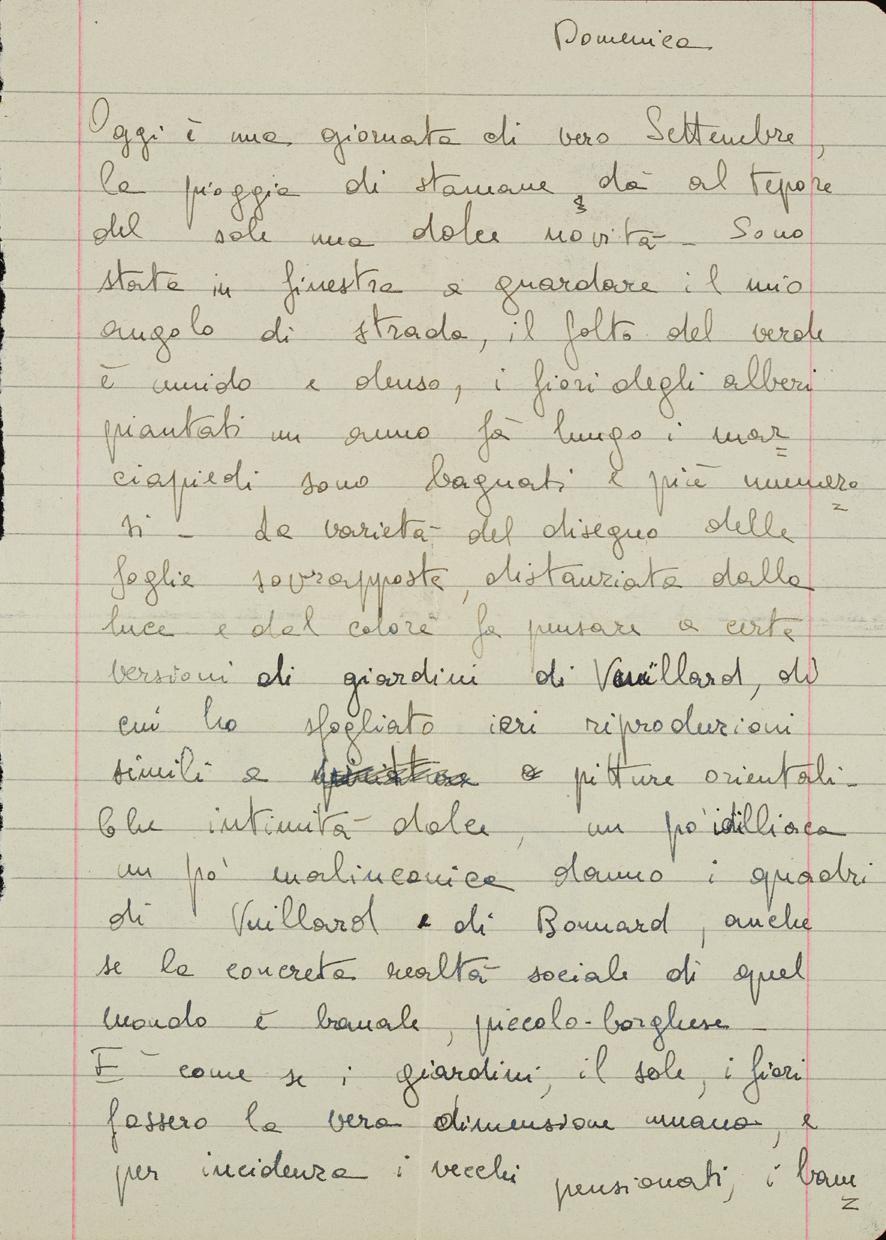 Domenica
Oggi è una giornata di vero Settembre,
la pioggia di stamane dà al tepore
del sole una dolce novità - Sono
stata in finestra a guardare il mio
angolo di strada, il folto del verde
è umido e denso, i fiori degli alberi
piantati un anno fà lungo i mar=
ciapiedi sono bagnati e più numero=
si - La varietà del disegno delle
foglie sovrapposte, distanziata dalla
luce e dal colore fa pensare a certe
versioni di giardini di Vuillard, di
cui ho sfogliato ieri riproduzioni
simili a a pitture orientali-
Che intimità dolce, un pò idilliaca
un pò malinconica danno i quadri
di Vuillard e di Bonnard, anche
se la concreta realtà sociale di quel
mondo è banale, piccolo-borghese -
E' come se i giardini, il sole, i fiori
fossero la vera dimensione umana, e
per incidenza i vecchi pensionati, i bam=